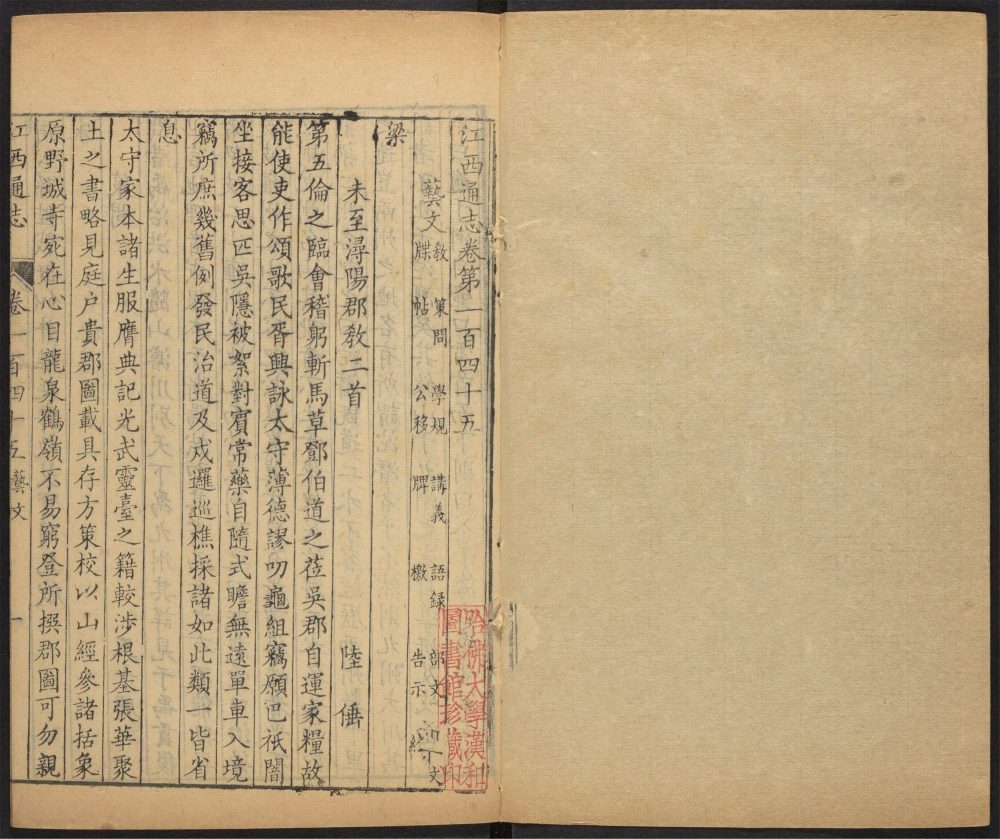 江西通志卷第一百四十五
藝文 教 策問 學規 講義 語錄 部文
牒 帖 公移 牌 檄 告示
梁
未至潯陽郡教二首 陸倕
第五倫之臨會稽躬斬馬草鄧伯道之莅吳郡自運家糧故
能使吏作頌歌民胥興詠太守薄德謬叨龜組竊願巴祇闇
坐接客思匹吳隱被絮對賓常藥自隨式瞻無遠單車入境
竊所庶幾舊例發民治道及戍邏巡樵採諸如此類一皆省
息
太守家本諸生服膺典記光武靈臺之籍較涉根基張華聚
土之書略見庭户貴郡圖載具存方策校以山經參諸括象
原野城寺宛在心目龍泉鶴嶺不易窮登所撰郡圖可勿親
江西通志 卷一百四十五 藝文 一
哈佛大學漢和
圖書館珍藏印